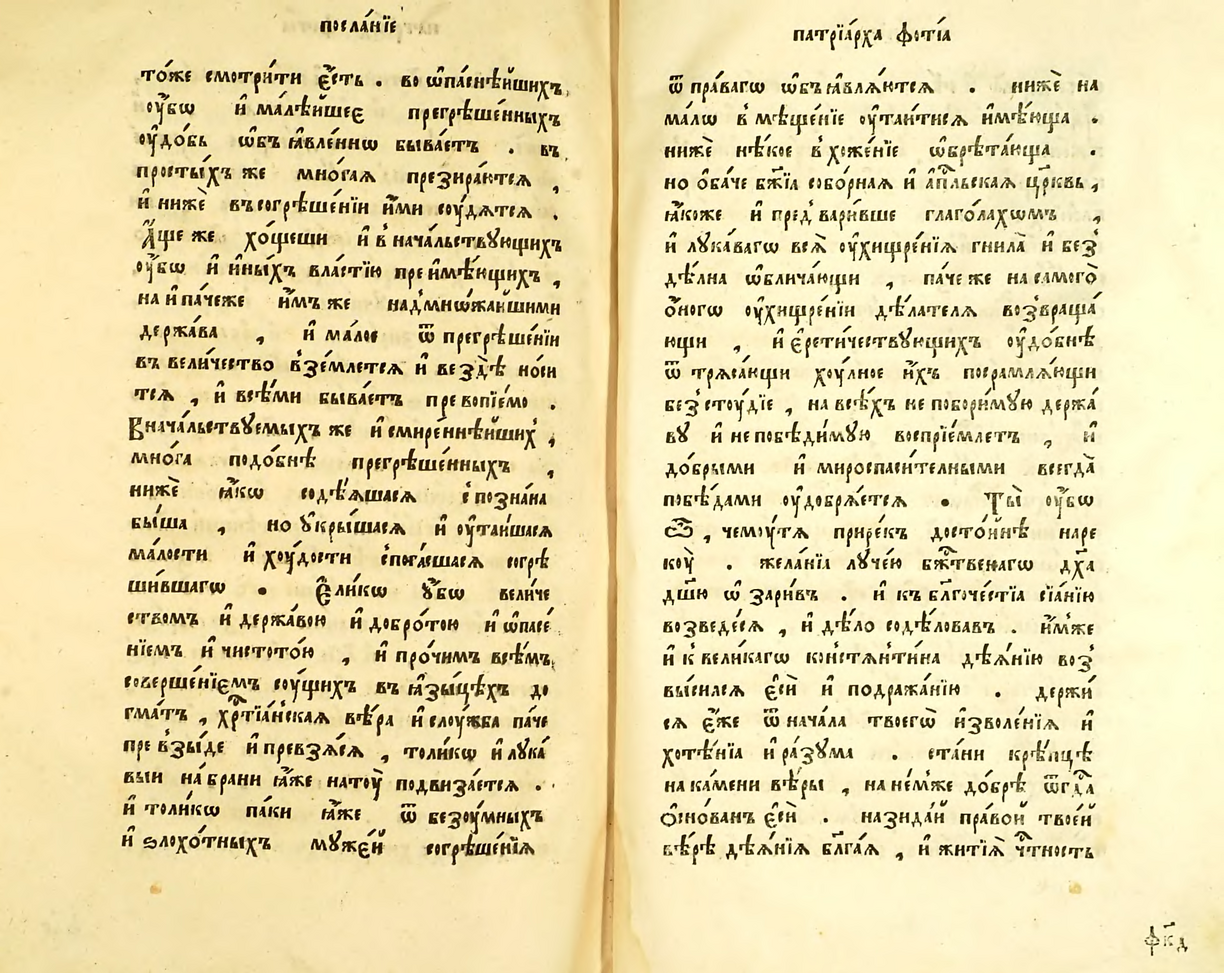 посла́нїе
то́же смотри́ти є҆́сть . во ѡ҆па́снѣйшихъ
ᲂу҆́бѡ и҆ малѣ́йшеє прегрѣше́нныхъ
ᲂу҆до́бь ѡ҆бъꙗвле́ннѡ быва́етъ . въ
просты́хъ же мно́гаѧ презира́ютсѧ ,
и҆ нижѐ въсогрѣше́нїи и҆́ми соу́дѧтсѧ .
А҆́ще же хо́щеши и҆ в нача́льствꙋющихъ
ᲂу҆́бѡ и҆ и҆ны́хъ вла́стїю преимѣ́ющихъ ,
на и҆ па́чеже и҆̀мъ же надмнѡ́жаишими
держа́ва , и҆ ма́лое ѿ прегрѣше́нїи
въ вели́чество взе́млетсѧ и҆ вездѣ̀ но́си
тсѧ , и҆ всѣ́ми быва́етъ превопїе́мо .
Внача́льствꙋемыхъ же и҆ смире́ннѣйшихъ ,
мно́га подо́бнѣ прегрѣше́нныхъ ,
нижѐ ꙗ҆́кѡ содѣ́ѧшасѧ спозна́на
бы́ша , но ᲂу҆кры́шасѧ и҆ ᲂу҆таи́шасѧ
ма́лости и҆ хоу́дости спогаси́шасѧ согрѣ
ши́вшагѡ . Є҆ли́кѡ ᲂу҆́бѡ вели́че
ствомъ и҆ держа́вою и҆ добро́тою и҆ ѡ҆пасе́
нїемъ и҆ чистото́ю , и҆ про́чимъ всѣ́мъ
соверше́нїемъ соу́щихъ въ ꙗ҆зы́цѣхъ до
гма́тъ , хрⷭ҇тїа́нскаѧ вѣ́ра и҆ слоу́жба па́че
превзы́де и҆ превзѧ́сѧ , толи́кѡ и҆ лꙋка́
выи на бра́ни ꙗ҆́же натоу̀ подвиза́етсѧ .
и҆ толи́кѡ па́ки ꙗ҆́же ѿ безоу́мныхъ
и҆ ѕлохо́тныхъ мꙋже́й согрѣше́нїѧ
патрїа́рха фо́тїа
ѿ пра́вагѡ ѡ҆бъꙗвлѧ́ютсѧ . нижѐ на
ма́лѡ в мѣще́нїе ᲂу҆таи́тисѧ и҆мѣ́юща .
нижѐ нѣ́кое в хоже́нїе ѡ҆брѣта́юща .
но ѻ҆ба́че бж҃їѧ собо́рнаѧ и҆ а҆пⷭ҇льскаѧ цр҃ковь ,
ꙗ҆́коже и҆ предвари́вше глаго́лахѡмъ ,
и҆ лꙋка́вагѡ всѧ̀ ᲂу҆хищре́нїѧ гнила̀ и҆ без
дѣ́лна ѡ҆блича́ющи , па́че же на самого̀
ѻ҆́ногѡ ᲂу҆хищре́нїи дѣ́лателѧ возвраща́
ющи , и҆ є҆рети́чествꙋющихъ ᲂу҆до́бнѣ
ѿ трѧса́ющи хоу́лное и҆́хъ посрамлѧ́ющи
безстоу́дїе , на всѣ́хъ не побори́мꙋю держа́
вꙋ и҆ непобѣди́мꙋю воспрїе́млетъ , и҆
до́брыми и҆ мироспаси́телными всегда̀
побѣ́дами ᲂу҆добрѧ́етсѧ . Ты̀ ᲂу҆́бѡ
ѽ , чемоу́тѧ прире́къ досто́йнѣ наре
коу̀ . жела́нїѧ лꙋче́ю бжⷭ҇твенагѡ дх҃а
дш҃ю ѡ҆зари́въ . и҆ къ блгⷭ҇оче́стїа сїа́нїю
возведе́сѧ , и҆ дѣ́ло содѣ́ловавъ . и҆́мже
и҆ к вели́кагѡ конъстѧнти́на дѣѧ́нїю воз
вы́силсѧ є҆сѝ и҆ подража́нїю . держи́
сѧ є҆́же ѿ нача́ла твоегѡ̀ и҆зволе́нїѧ и҆
хотѣ́нїа и҆ ра́зꙋма . ста́ни крѣ́пцѣ
на ка́мени вѣ́ры , на не́мже до́брѣ ѿгдⷭ҇а
ѻ҆сно́ванъ є҆сѝ . назида́й пра́вой твое́й
вѣ́рѣ дѣѧ́нїѧ блⷢ҇аѧ , и҆ житїѧ̀ чтⷭ҇ность
фк҃д